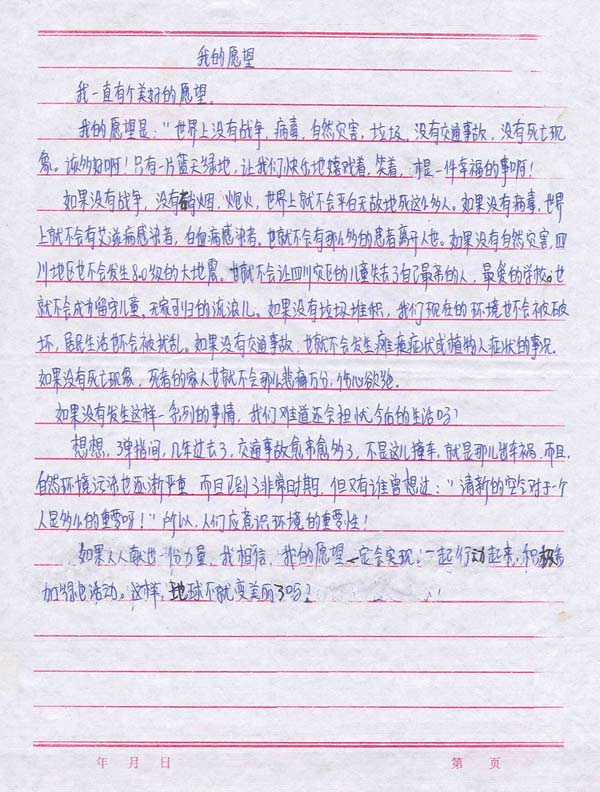 我的愿望
我一直有个美好的愿望。
我的愿望是:"世界上没有战争,病毒,自然灾害,垃圾,没有交通事故,没有死亡现
象。该多好啊!只有一片蓝天绿地,让我们快乐地嬉戏着,笑着,才是一件幸福的事啊!
如果没有战争,没有硝烟,炮火,世界上就不会平白无故地死这么多人。如果没有病毒,世界
上就不会有艾滋病感染者,白血病感染者。也就不会有那么多的患者离开人世。如果没有自然灾害,四
川地区也不会发生8.0级的大地震。也就不会让四川灾区的儿童失去了自己最亲的人,最爱的学校。也
就不会成为留守儿童、无家可归的流浪儿。如果没有垃圾堆积,我们现在的环境也不会被破
坏,居民生活也不会被扰乱。如果没有交通事故,也就不会发生瘫痪症状或植物人症状的事况。
如果没有死亡现象,死者的家人也就不会那么悲痛万分,伤心欲绝。
如果没有发生这样一系列的事情,我们难道还会担忧今后的生活吗?
想想,弹指间,几年过去了,交通事故愈来愈多了,不是这儿撞车,就是那儿出车祸,而且,
自然环境污染也逐渐严重,而且已到了非常时期,但又有谁曾想过:"清新的空气对于一个
人是多么的重要呀!"所以,人们应意识环境的重要性!
如果人人献出一份力量,我相信,我的愿望一定会实现。一起行动起来,积极参
加绿色活动。这样,地球不就变美丽了吗?
年 月 日 第 页